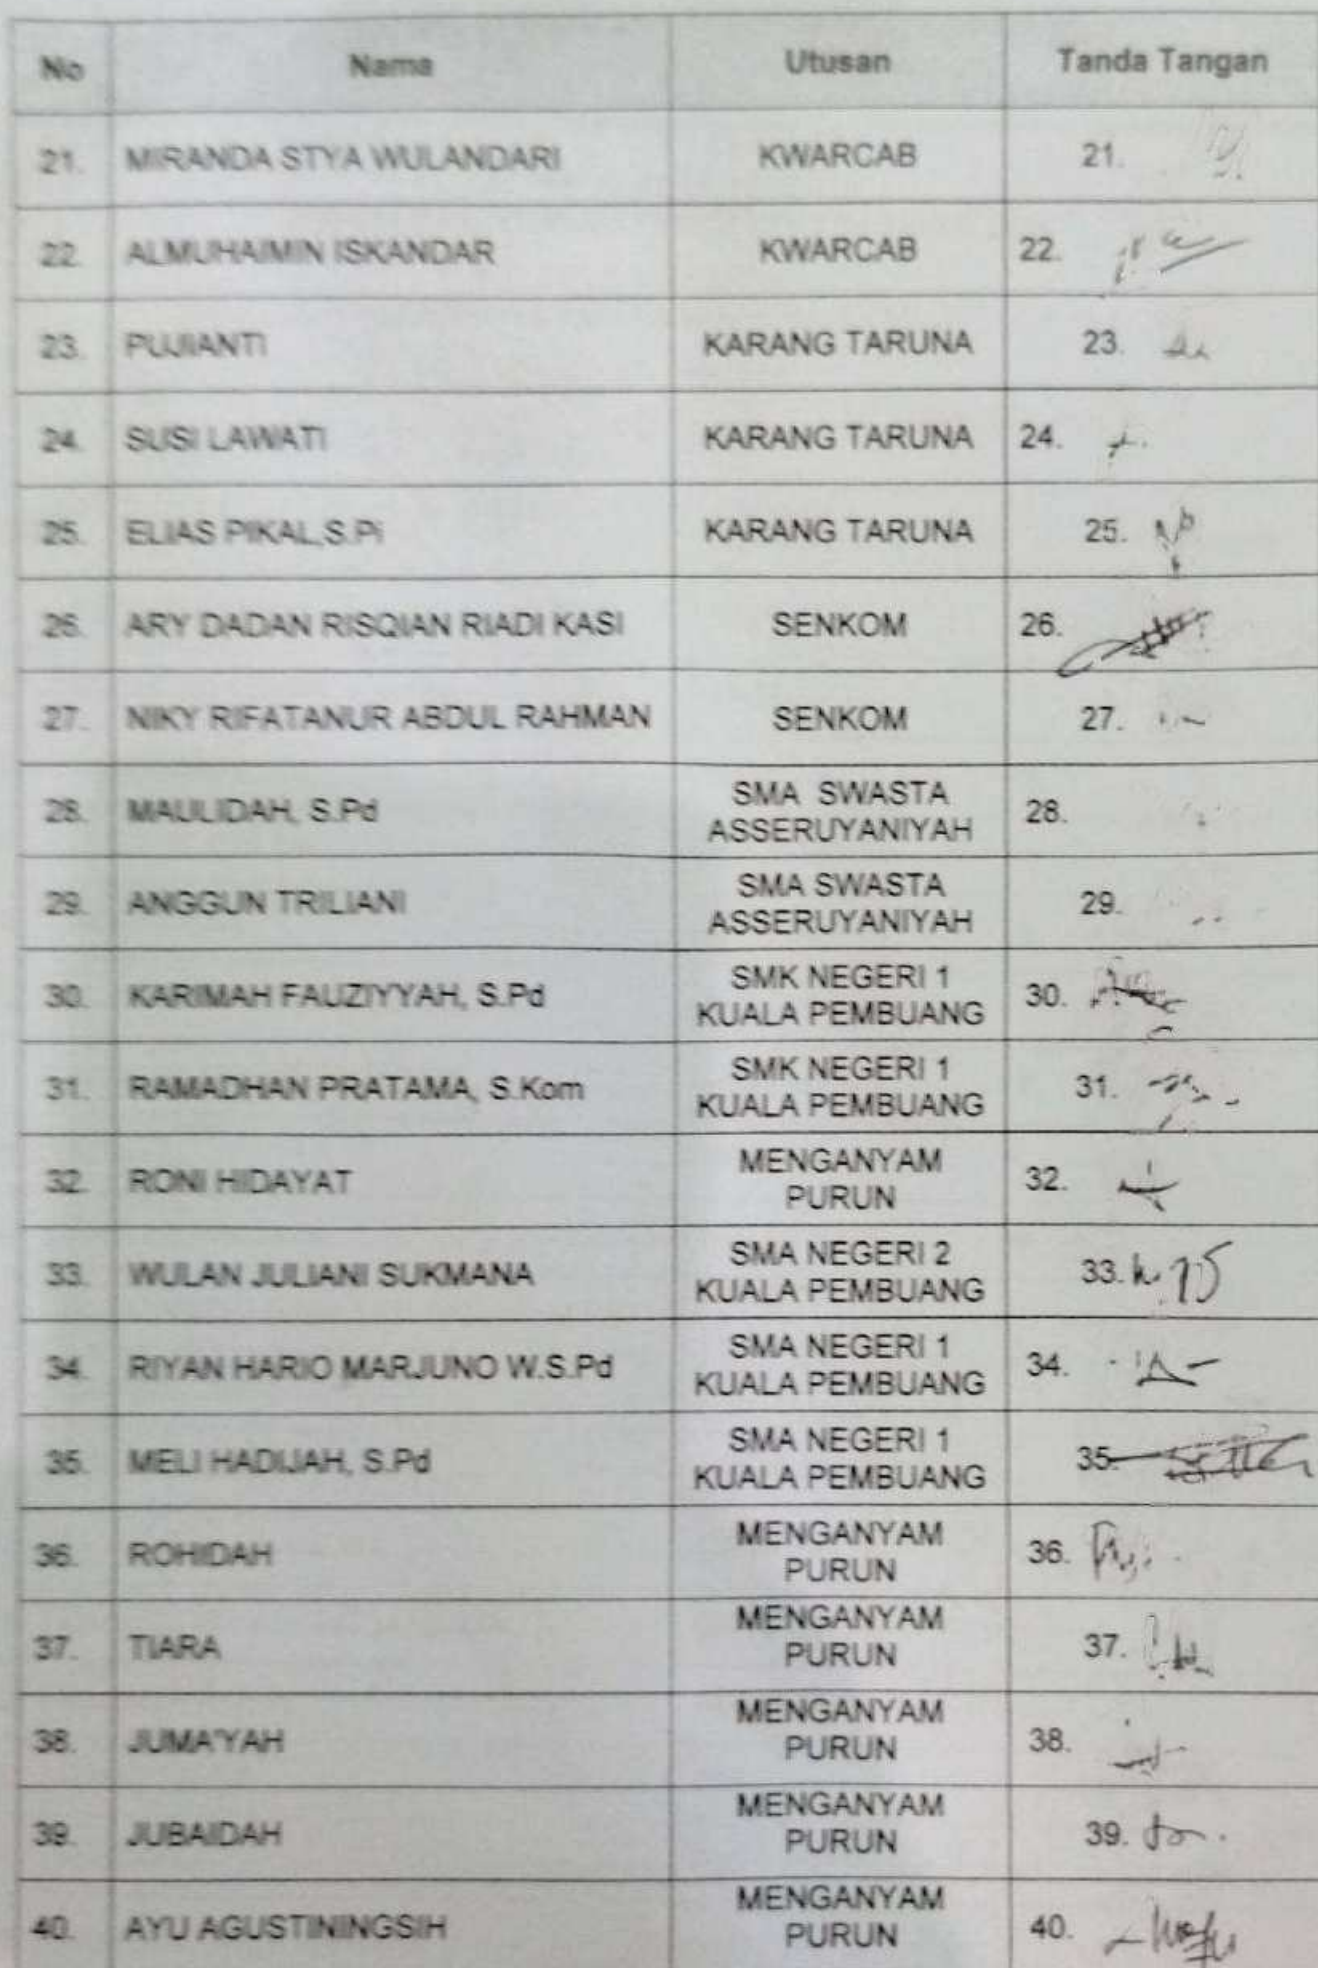 No Nama Utusan Tanda Tangan
21. MIRANDA STYA WULANDARI KWARCAB 21.
22. ALMUHAIMIN ISKANDAR KWARCAB 22.
23. PUJIANTI KARANG TARUNA 23.
24. SUSI LAWATI KARANG TARUNA 24.
25. ELIAS PIKAL,S.Pi KARANG TARUNA 25.
26. ARY DADAN RISQIAN RIADI KASI SENKOM 26.
27. NIKY RIFATANUR ABDUL RAHMAN SENKOM 27.
28. MAULIDAH, S.Pd SMA SWASTA 28.
ASSERUYANIYAH
29. ANGGUN TRILIANI SMA SWASTA 29.
ASSERUYANIYAH
30. KARIMAH FAUZIYYAH, S.Pd SMK NEGERI 1 30.
KUALA PEMBUANG
31. RAMADHAN PRATAMA, S.Kom SMK NEGERI 1 31.
KUALA PEMBUANG
32. RONI HIDAYAT MENGANYAM 32.
PURUN
33. WULAN JULIANI SUKMANA SMA NEGERI 2 33.
KUALA PEMBUANG
34. RIYAN HARIO MARJUNO W.S.Pd SMA NEGERI 1 34.
KUALA PEMBUANG
35. MELI HADIJAH, S.Pd SMA NEGERI 1 35.
KUALA PEMBUANG
36. ROHIDAH MENGANYAM 36.
PURUN
37. TIARA MENGANYAM 37.
PURUN
38. JUMA'YAH MENGANYAM 38.
PURUN
39. JUBAIDAH MENGANYAM 39.
PURUN
40. AYU AGUSTININGSIH MENGANYAM 40.
PURUN